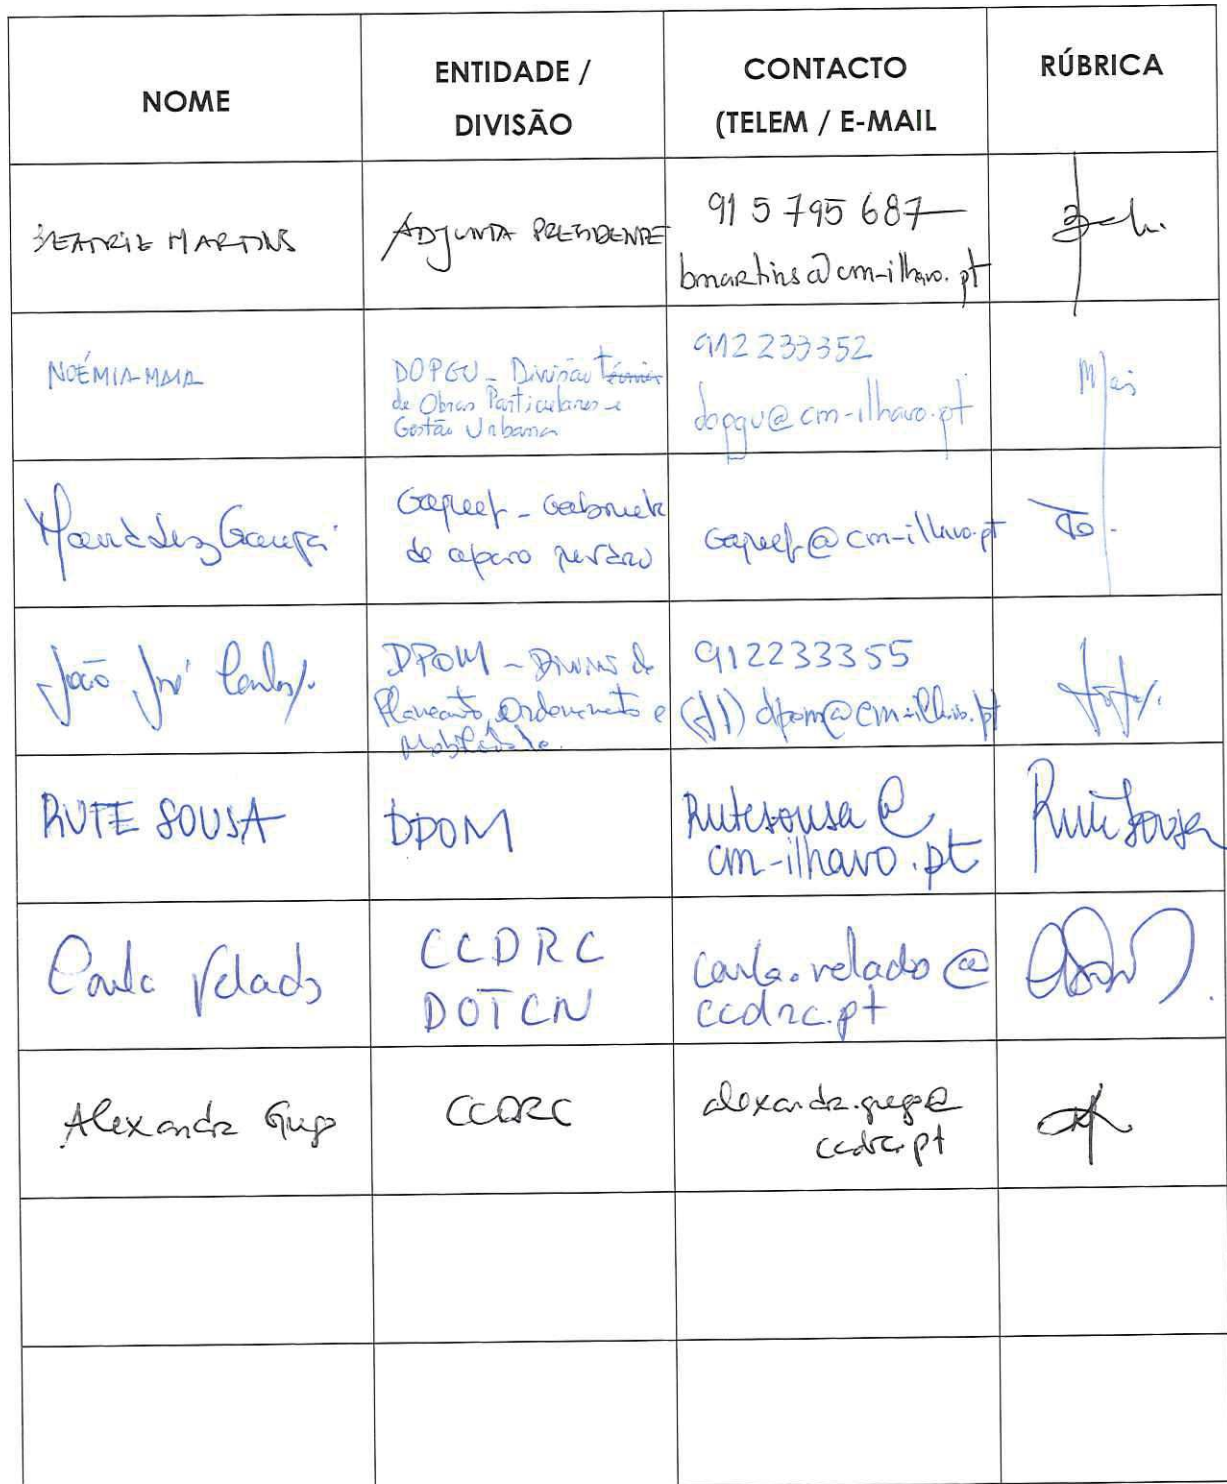 NOME
ENTIDADE /
DIVISÃO
CONTACTO
(TELEM / E-MAIL
RÚBRICA
BEATRIZ MARTINS
ADJUNTA PRESIDENTE
915 795 687
bmartins@cm-ilhavo.pt
NOÉMIA MAIA
DOPGU - Divisão
de Obras Particulares e
Gestão Urbana
912 233352
dopgu@cm-ilhavo.pt
Maia
de apoio
@cm-ilhavo.pt
João José Carlos
DPOM - Divisão de
Planeamento, Ordenamento e
Mobilidade.
912233355
dpom@cm-ilhavo.pt
RUTE SOUSA
DPOM
Rutesousa@
cm-ilhavo.pt
Rute Sousa
Carla Velado
CCDRC
DOTCN
carla.velado@
ccdrc.pt
Alexandra Grego
CCDRC
alexandra.grego@
ccdrc.pt